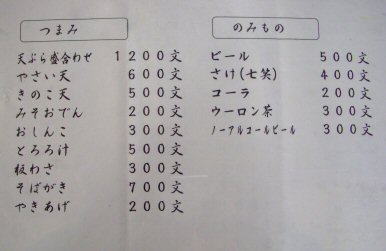 つまみ
天ぷら盛合わせ 1200文
やさい天 600文
きのこ天 500文
みそおでん 200文
おしんこ 300文
とろろ汁 500文
板わさ 300文
そばがき 700文
やきあげ 200文
のみもの
ビール 500文
さけ(七笑) 400文
コーラ 200文
ウーロン茶 300文
ノーアルコールビール 300文